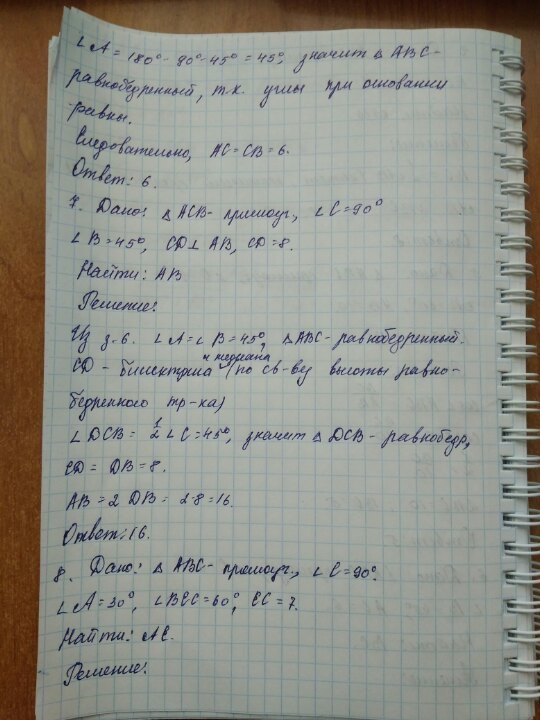 ∠A = 180° - 90° - 45° = 45°, значит △ ABC -
равнобедренный, т.к. углы при основании
равны.
Следовательно, AC = CB = 6.
Ответ: 6.
7. Дано: △ ACB - прямоуг, ∠C = 90°
∠B = 45°, CD ⊥ AB, CD = 8.
Найти: AB
Решение:
Из з. 6. ∠A = ∠B = 45°, △ABC - равнобедренный.
и медиана
CD - биссектриса (по св-ву высоты равно-
бедренного тр-ка)
∠DCB = 1/2 ∠C = 45°, значит △ DCB - равнобедр,
CD = DB = 8.
AB = 2 DB = 2·8 = 16.
Ответ: 16.
8. Дано: △ ABC - прямоуг., ∠C = 90°.
∠A = 30°, ∠BEC = 60°, EC = 7.
Найти: AE.
Решение: